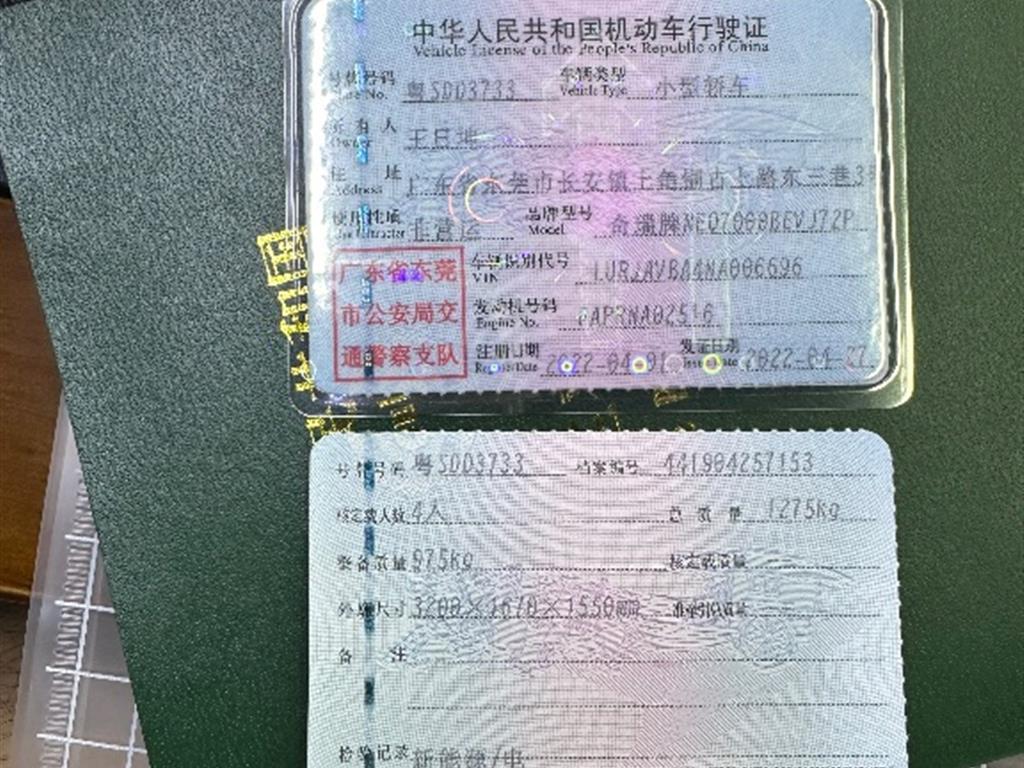 中华人民共和国机动车行驶证
Vehicle License of the People's Republic of China
号牌号码 粤SDD3733 车辆类型 小型轿车
Plate No. Vehicle Type
所有人
Owner
住址 广东省东莞市长安镇上角
Address
使用性质 非营运 品牌型号 奇瑞牌
Use Character Model
广东省东莞
市公安局交
通警察支队
车辆识别代号
VIN
发动机号码
Engine No.
注册日期 2022-04 发证日期 2022-04-27
Register Date Issue Date
号牌号码 粤SDD3733 档案编号 441904257153
核定载人数 4人 总质量 1275kg
整备质量 975kg 核定载质量
外廓尺寸 3200×1670×1550mm 准牵引总质量
备注
检验记录 新能源/电